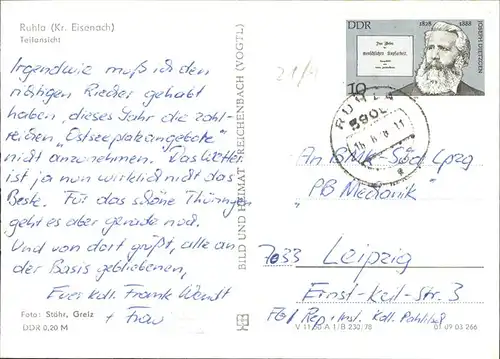 Ruhla (Kr. Eisenach)
Teilansicht
Irgendwie muß ich den
richtigen Riecher gehabt
haben, dieses Jahr die zahl-
reichen „Ostseeplatzangebote“
nicht anzunehmen. Das Wetter
ist ja nun wirklich nicht das
Beste. Für das schöne Thüringen
geht es aber gerade noch.
Und von dort grüßt, alle an
der Basis gebliebenen,
Euer Koll. Frank Wendt
+ Frau
Foto: Stöhr, Greiz
DDR 0,20 M
BILD UND HEIMAT REICHENBACH (VOGTL)
DDR
1828 1888
JOSEPH DIETZGEN
Das Wesen
menschlichen Kopfarbeit.
10
RUHLA
5906
An BMK-Süd Lpzg
"PB Mechanik"
7033 Leipzig
Ernst-Keil-Str. 3
V 11/50 A 1/B 230/78 01 09 03 266